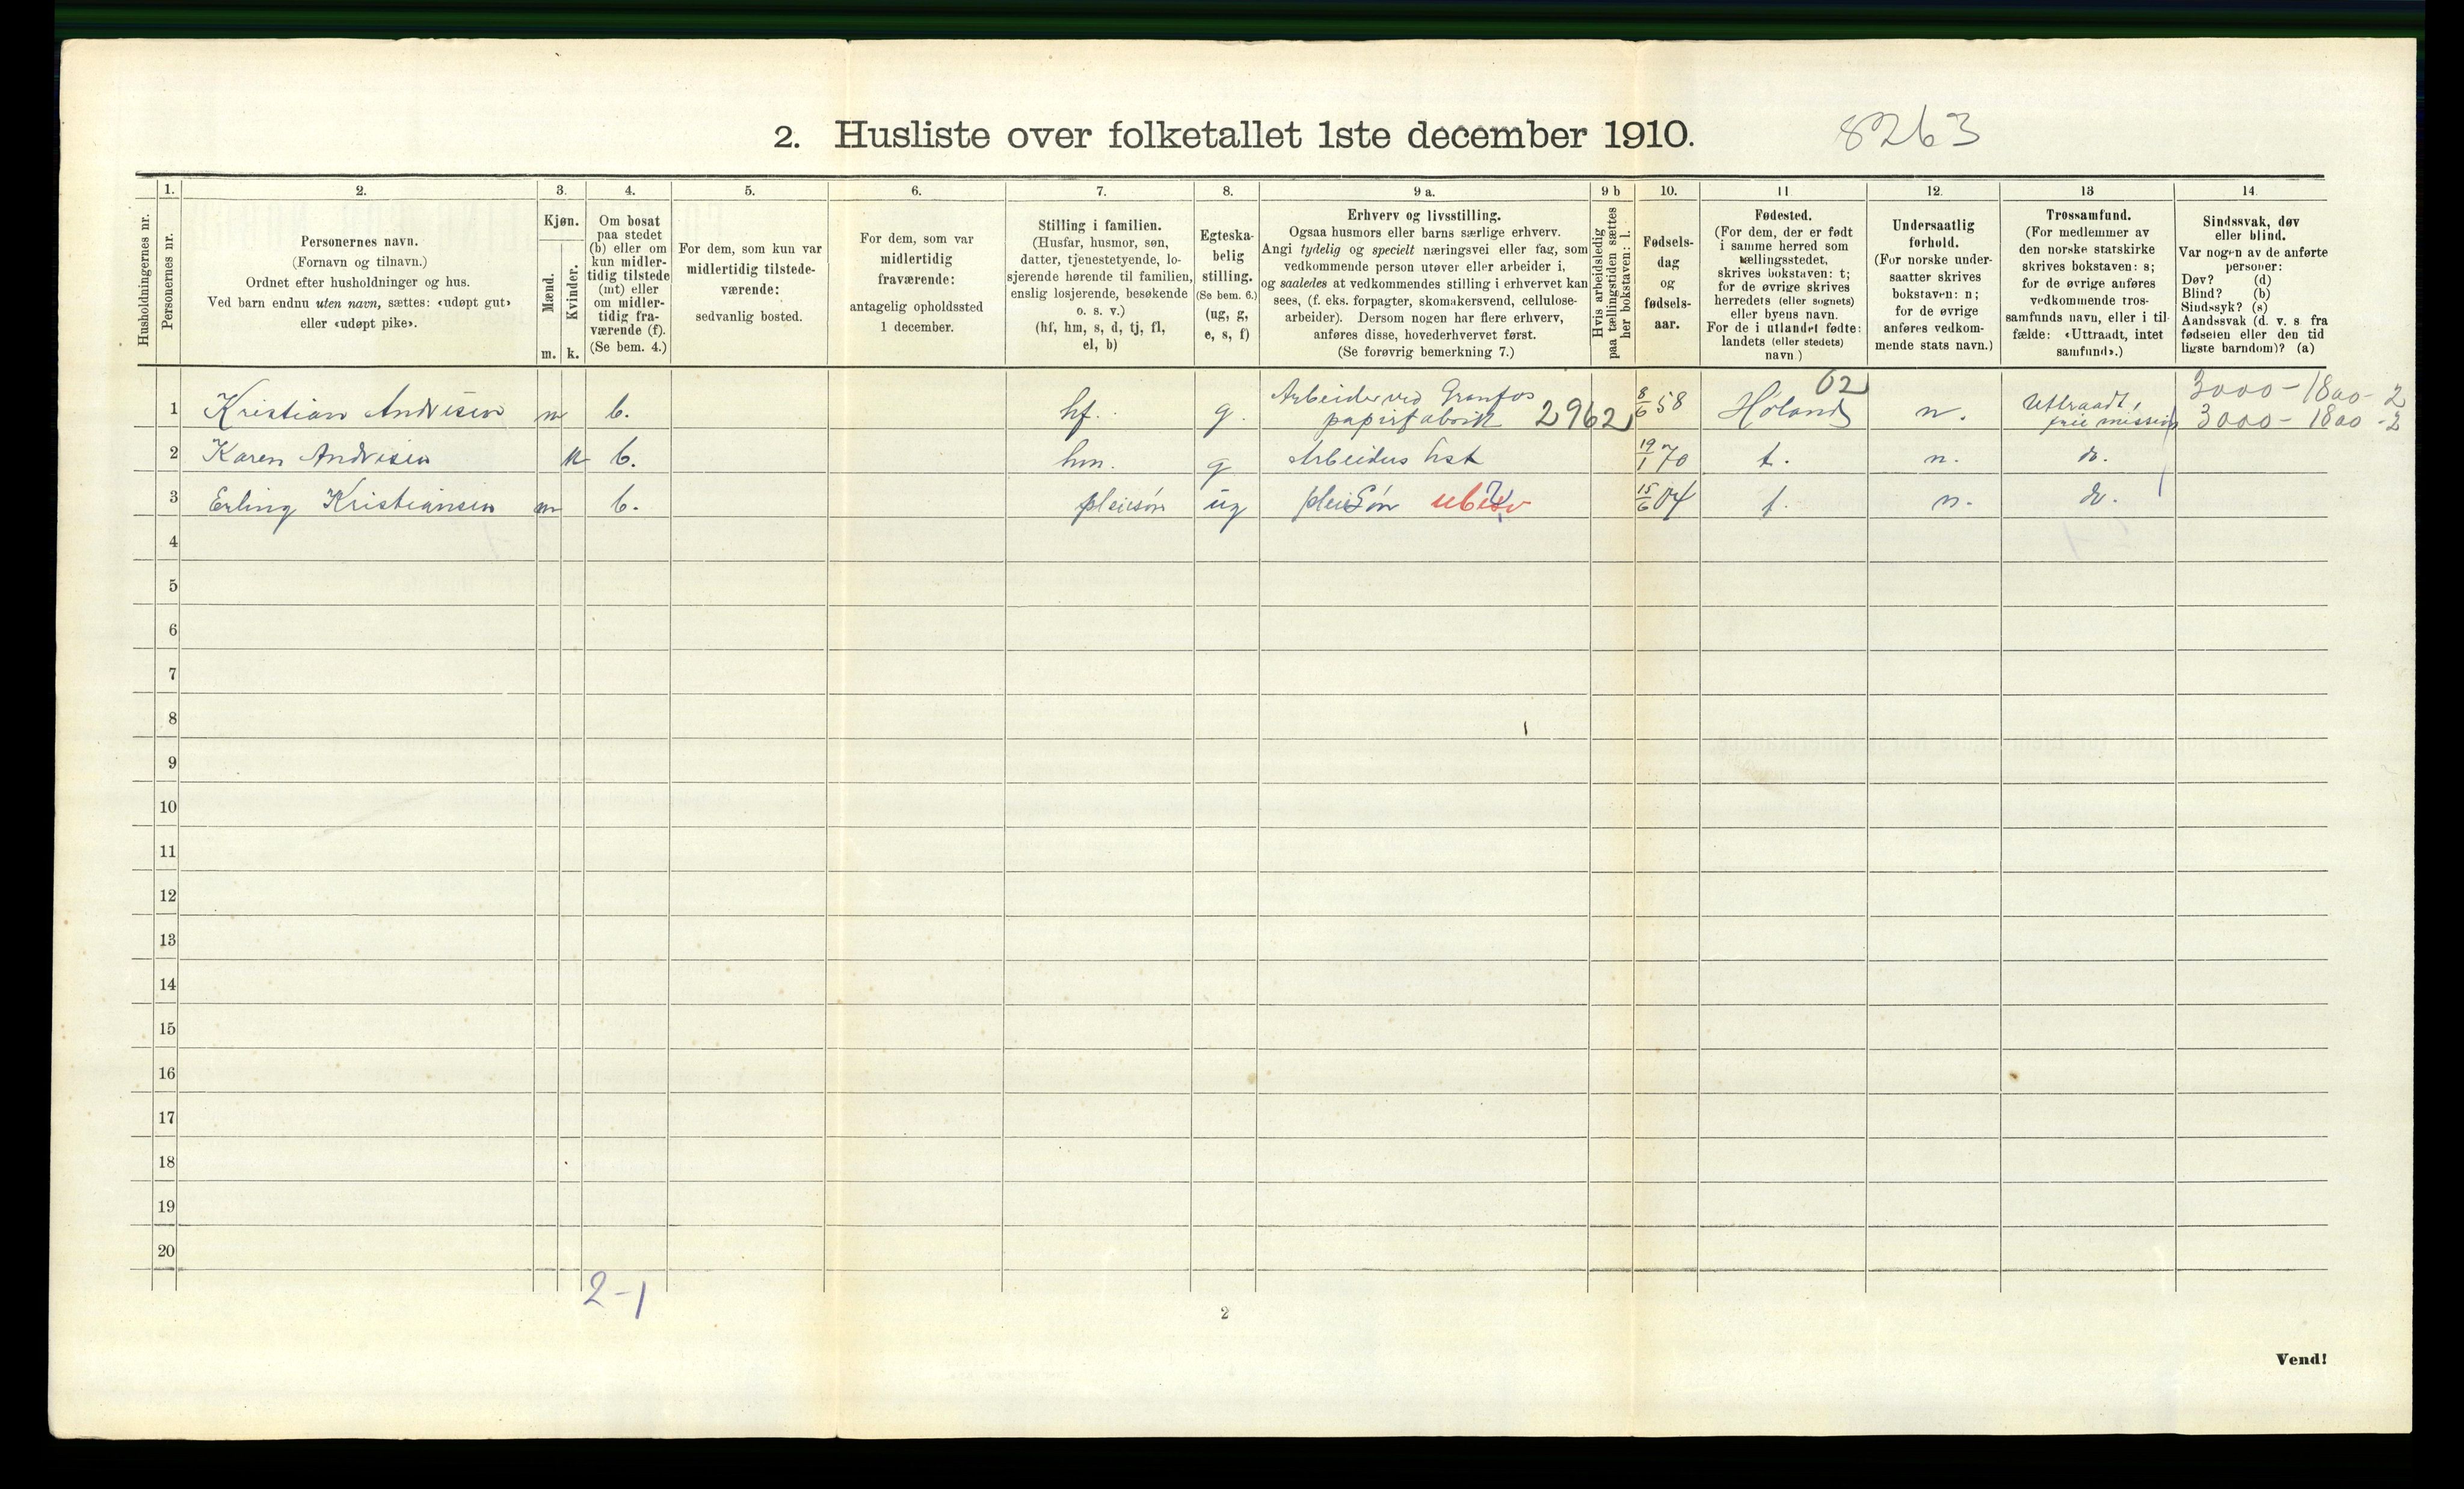 2. Husliste over folketallet 1ste december 1910. 8263
1. 2. 3. 4. 5. 6. 7. 8. 9 a. 9 b 10. 11 12. 13 14.
Husholdningernes nr.
Personernes nr.
Personernes navn.
(Fornavn og tilnavn.)
Ordnet efter husholdninger og hus.
Ved barn endnu uten navn, sættes: «udøpt gut»
eller «udøpt pike».
Kjøn.
Mænd.
Kvinder.
m. k.
Om bosat
paa stedet
(b) eller om
kun midler-
tidig tilstede
(mt) eller
om midler-
tidig fra-
værende (f).
(Se bem. 4.)
For dem, som kun var
midlertidig tilstede-
værende:
sedvanlig bosted.
For dem, som var
midlertidig
fraværende:
antagelig opholdssted
1 december.
Stilling i familien.
(Husfar, husmor, søn,
datter, tjenestetyende, lo-
sjerende hørende til familien,
enslig losjerende, besøkende
o. s. v.)
(hf, hm, s, d, tj, fl,
el, b)
Egteska-
belig
stilling.
(Se bem. 6.)
(ug, g,
e, s, f)
Erhverv og livsstilling.
Ogsaa husmors eller barns særlige erhverv.
Angi tydelig og specielt næringsvei eller fag, som
vedkommende person utøver eller arbeider i,
og saaledes at vedkommendes stilling i erhvervet kan
sees, (f. eks. forpagter, skomakersvend, cellulose-
arbeider). Dersom nogen har flere erhverv,
anføres disse, hovederhvervet først.
(Se forøvrig bemerkning 7.)
Hvis arbeidsledig
paa tællingstiden sættes
her bokstaven: l.
Fødsels-
dag
og
fødsels-
aar.
Fødested.
(For dem, der er født
i samme herred som
tællingsstedet,
skrives bokstaven: t;
for de øvrige skrives
herredets (eller sognets)
eller byens navn.
For de i utlandet fødte:
landets (eller stedets)
navn )
Undersaatlig
forhold.
(For norske under-
saatter skrives
bokstaven: n;
for de øvrige
anføres vedkom-
mende stats navn.)
Trossamfund.
(For medlemmer av
den norske statskirke
skrives bokstaven: s;
for de øvrige anføres
vedkommende tros-
samfunds navn, eller i til-
fælde: «Uttraadt, intet
samfund».)
Sindssvak, døv
eller blind.
Var nogen av de anførte
personer:
Døv? (d)
Blind? (b)
Sindssyk? (s)
Aandssvak (d. v. s fra
fødselen eller den tid
ligste barndom)? (a)
62 3000-1800-2
1 Kristian Andresen m b. hf. g. Arbeider ved Granfos papirfabrik 2962 8/6 58 Høland n. Uttraadt, frie mission 3000-1800-2
2 Karen Andresen k b. hm. g Arbeiders hst 19/1 70 t. n. do.
3 Erling Kristiansen m b. pleiesøn ug pleiesøn 15/6 04 t. n. do.
4
5
6
7
8
9
10
11
12
13
14
15
16
17
18
19
20
2-1
2
Vend!